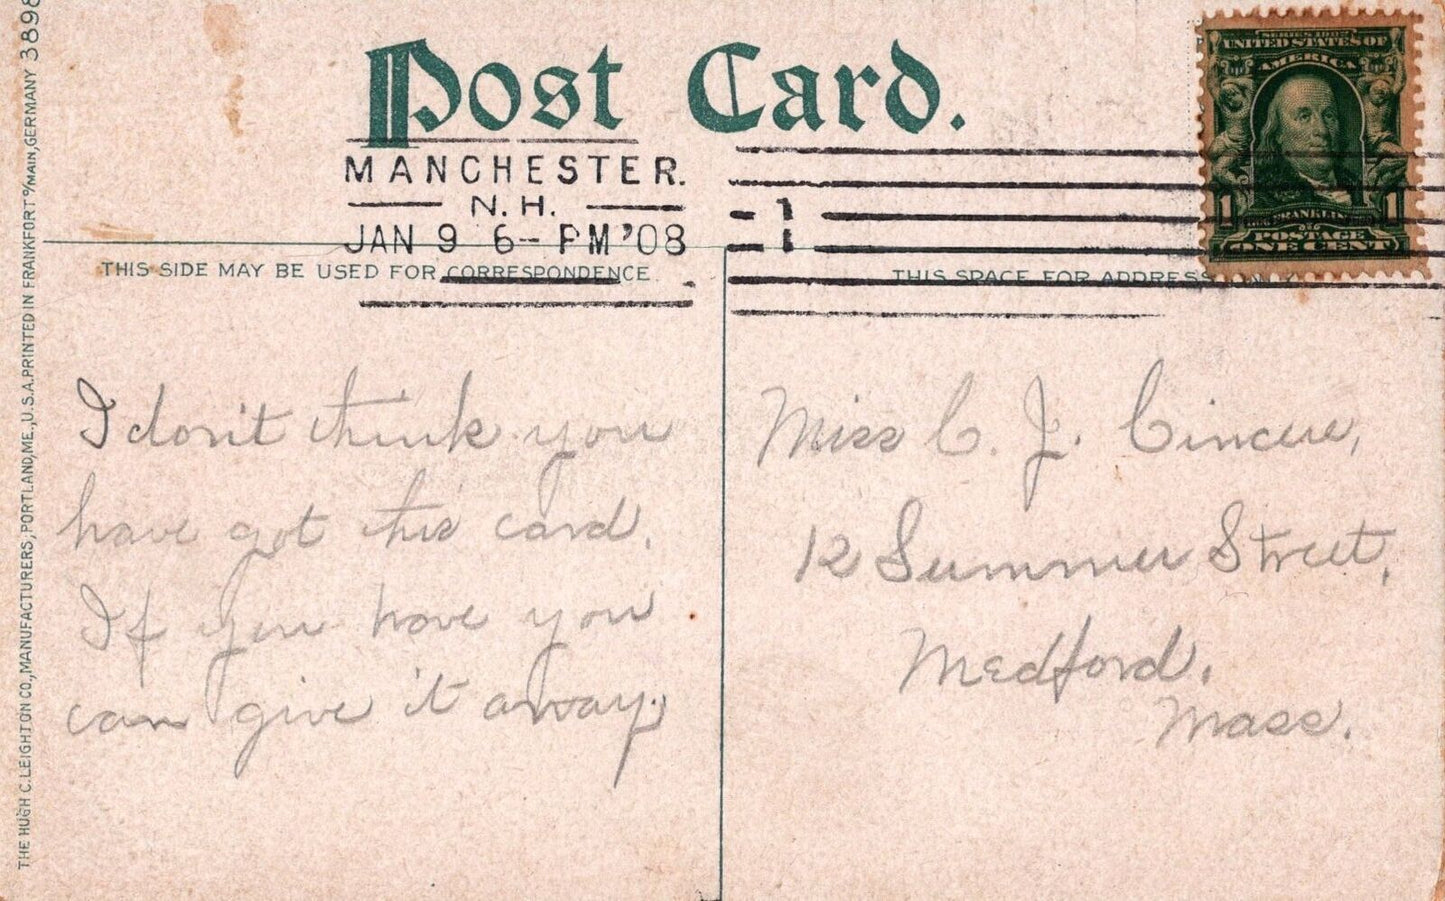 THE HUGH C. LEIGHTON CO., MANUFACTURERS, PORTLAND, ME., U.S.A. PRINTED IN FRANKFORT o/MAIN, GERMANY 3898
Post Card.
MANCHESTER.
N.H.
JAN 9 6- PM '08
1
SERIES 1902
UNITED STATES OF
AMERICA
1 FRANKLIN 1
POSTAGE
ONE CENT
THIS SIDE MAY BE USED FOR CORRESPONDENCE
THIS SPACE FOR ADDRESS
I don't think you
have got this card.
If you have you
can give it away.
Miss C. J.
12 Summer Street,
Medford,
Mass.